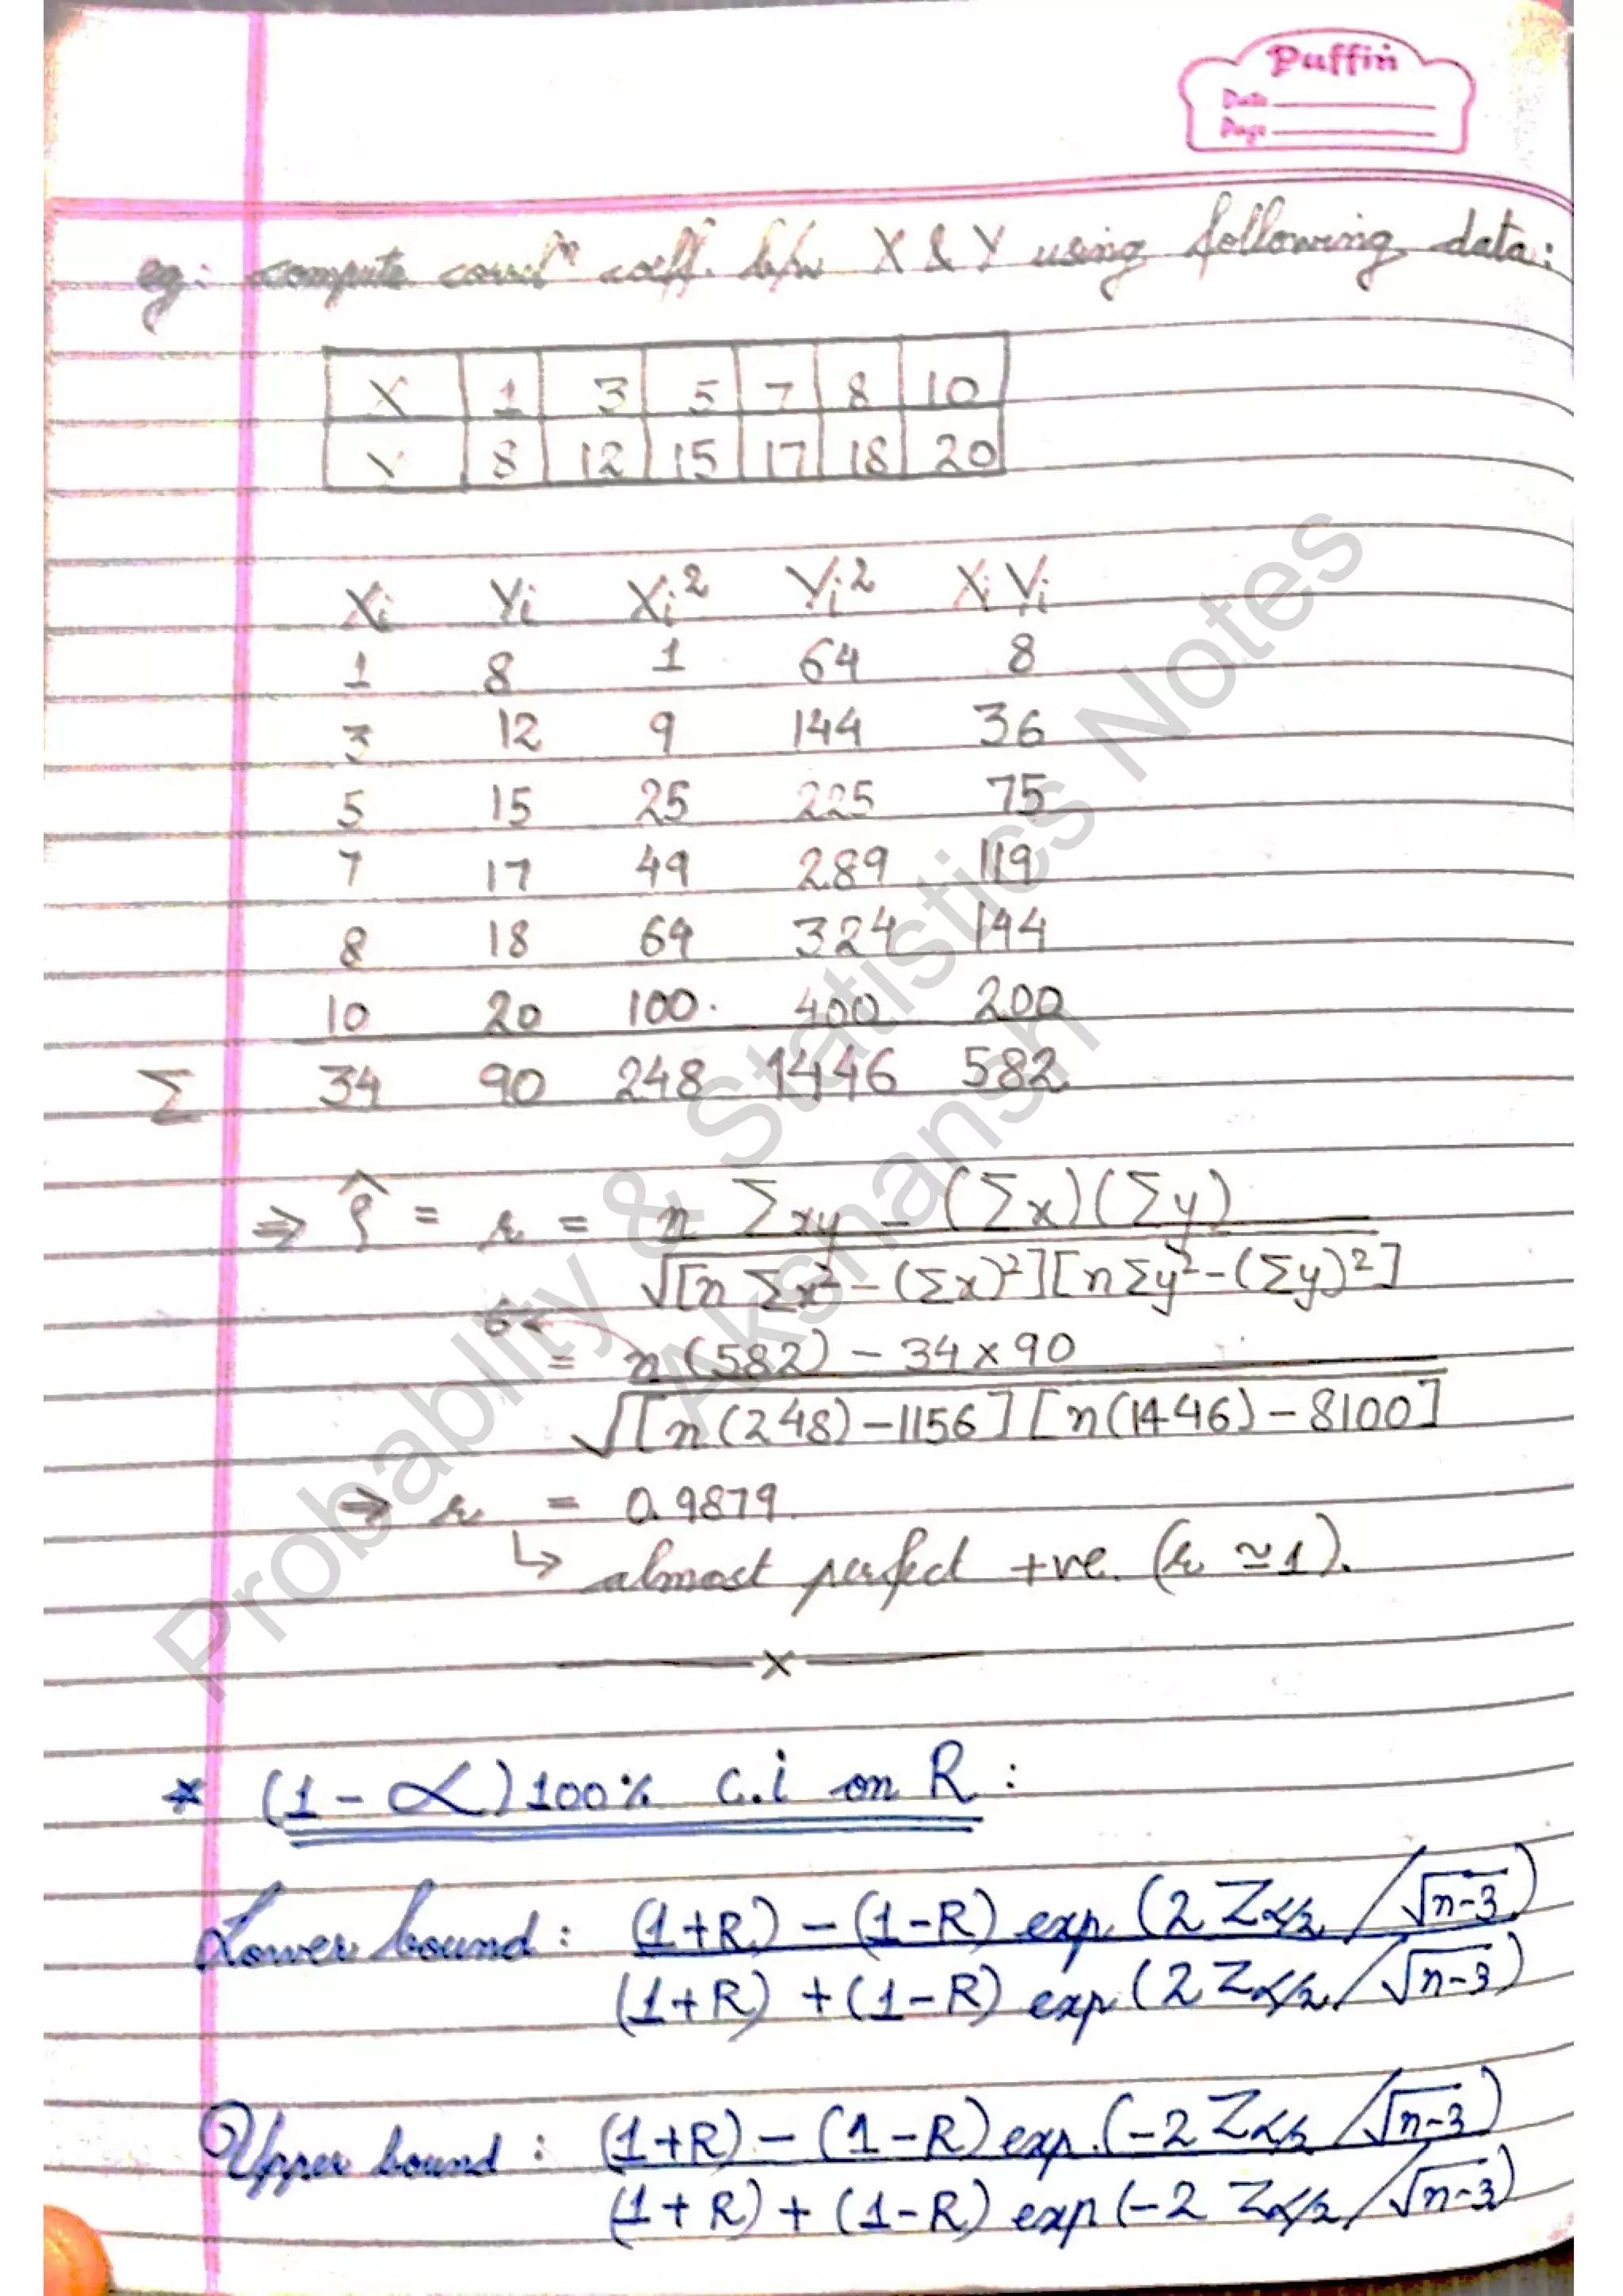 Puffin
Date
Page
eg: compute correlⁿ coeff. b/w X & Y using following data:
X 1 3 5 7 8 10
Y 8 12 15 17 18 20
Xi Yi Xi² Yi² XiYi
1 8 1 64 8
3 12 9 144 36
5 15 25 225 75
7 17 49 289 119
8 18 64 324 144
10 20 100. 400 200
Σ 34 90 248 1446 582
⇒ ρ̂ = r = n Σxy - (Σx)(Σy)
√[n Σx² - (Σx)²][n Σy² - (Σy)²]
6 ←
= n(582) - 34 x 90
√[n(248) - 1156][n(1446) - 8100]
⇒ r = 0.9879.
↳ almost perfect +ve. (r ≃ 1).
x
* (1 - α)100% C.i on R :
Lower bound : (1+R) - (1-R) exp. (2 Zα/2 / √n-3)
(1+R) + (1-R) exp (2 Zα/2 / √n-3)
Upper bound : (1+R) - (1-R) exp. (-2 Zα/2 / √n-3)
(1+R) + (1-R) exp (-2 Zα/2 / √n-3)
Probablity & Statistics Notes
Akshansh